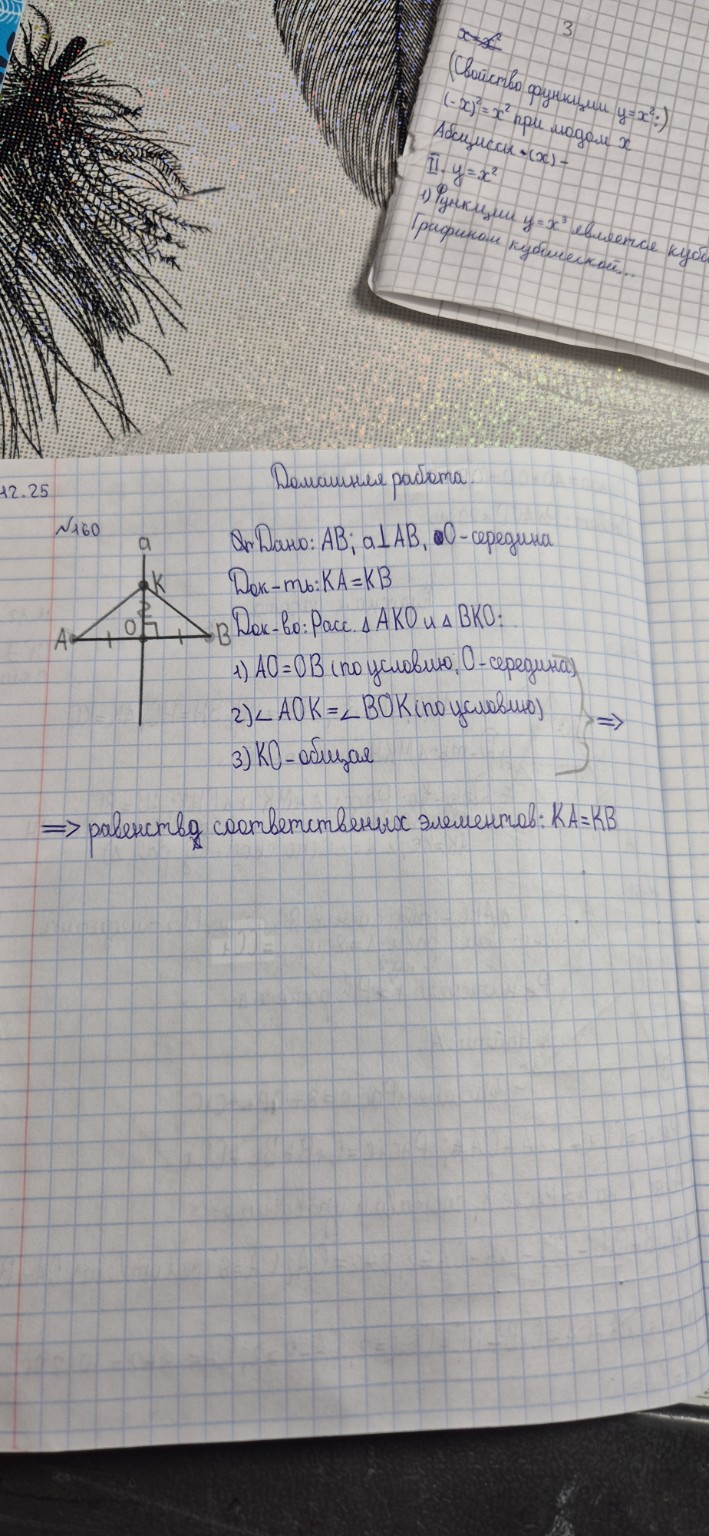 3
x=x²
(Свойство функции y=x²:)
(-x)²=x² при любом x
Абсциссы -(x)-
II. y=x²
1) Функции y=x³ является куби
Графиком кубической...
12.25
Домашняя работа.
№160
a
K
A
O
B
Дано: AB; a⊥AB, O-середина
Док-ть: KA=KB
Док-во: Расс. ▵ AKO и ▵ BKO:
1) AO=OB (по условию, O-середина)
2) ∠ AOK=∠ BOK (по условию)
3) KO-общая
=>
=> равенства соответственых элементов: KA=KB